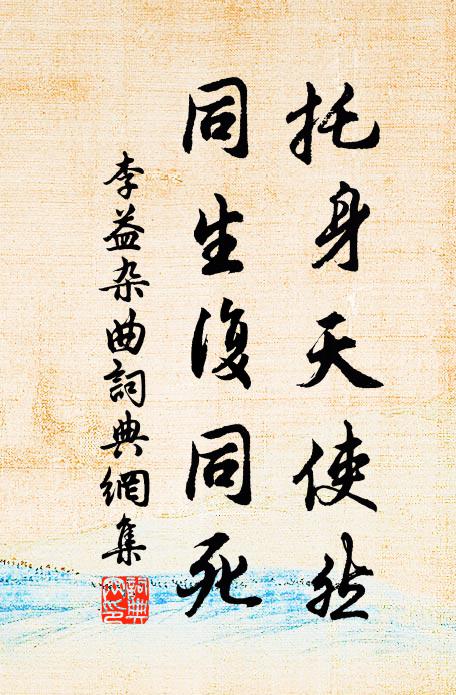 托身天使然
同生復同死
李益杂曲詞典網集